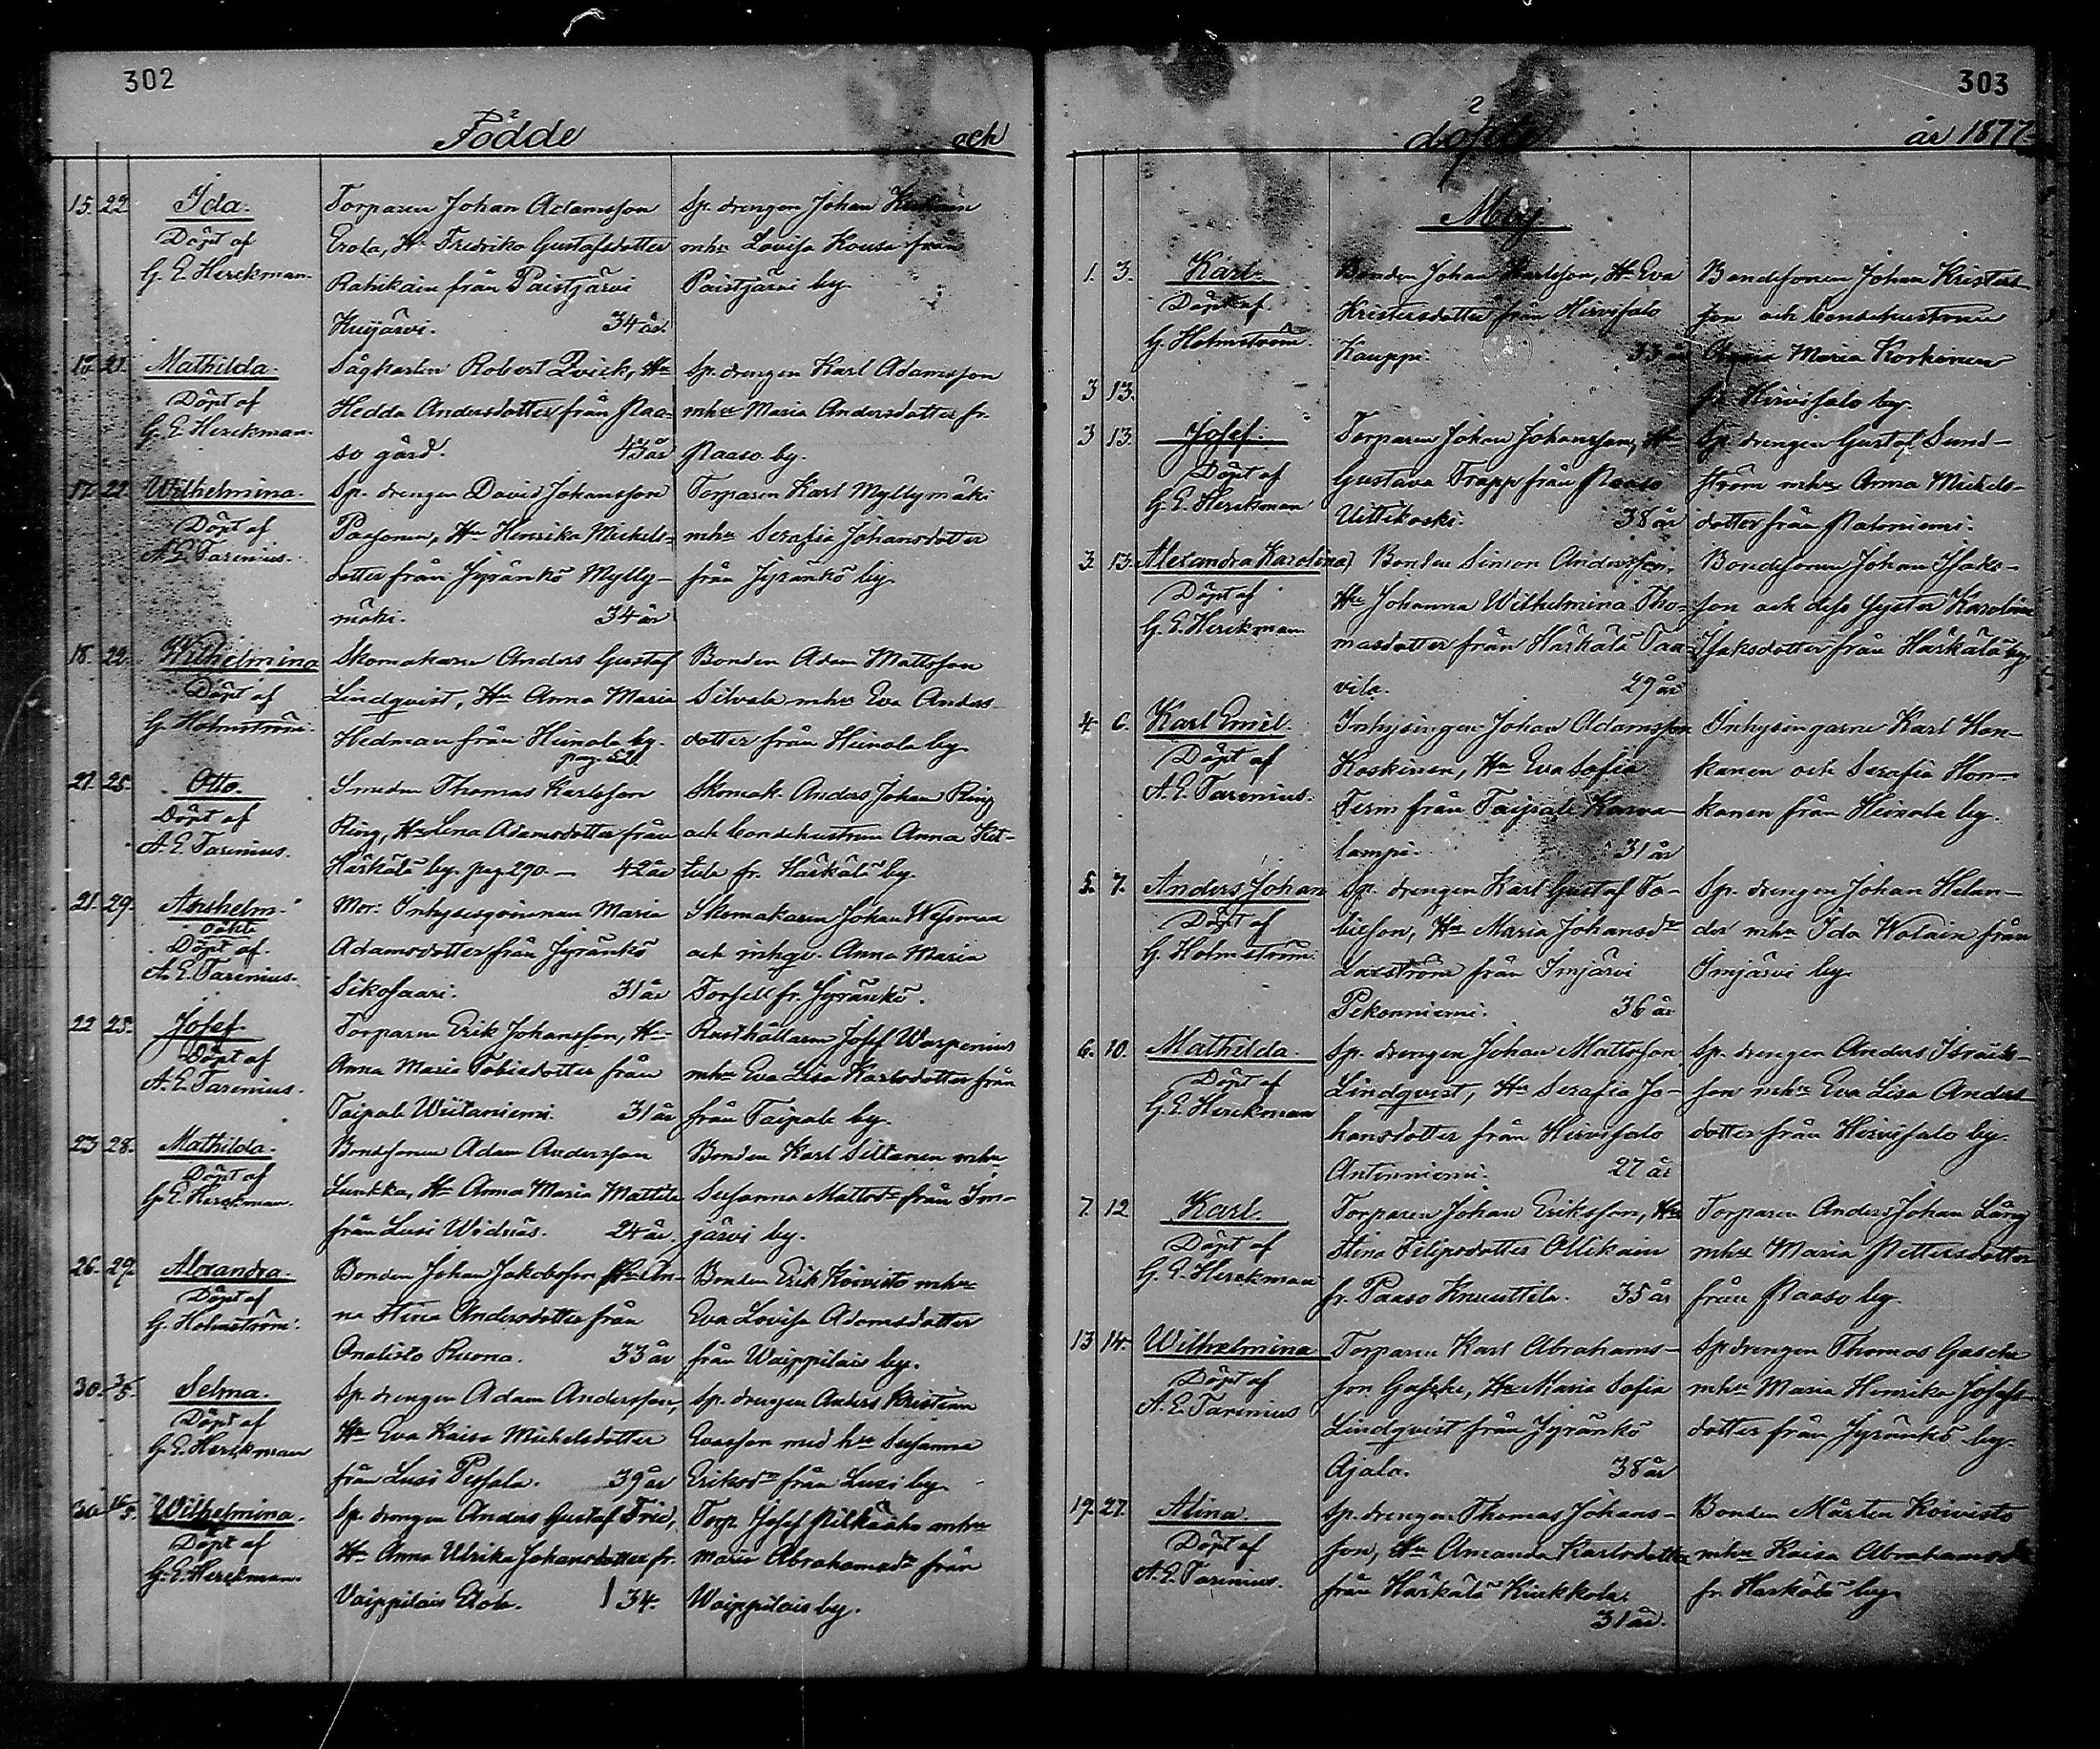 302
Födde
och
15. 22. Ida.
Döpt af
G. E. Herckman.
Torparen Johan Adamsson
Erola, Hu Fredrika Gustafsdotter
Rahikain från Paistjärvi
34 år.
Sp. drengen Johan
mhu Lovisa Kousa från
Paistjärvi by.
21. Mathilda.
Döpt af
G. E. Herckman.
Sågkarlen Robert Qvick, Hu
Hedda Andersdotter från Paa-
so gård. 43 år
Sp. drengen Karl Adamsson
mhu Maria Andersdotter fr.
Paaso by.
17. 22. Wilhelmina.
Döpt af
A. E. Tarenius.
Sp. drengen David Johansson
Paasonen, Hu Henrika Michels-
dotter från Jyränkö Mylly-
mäki. 34 år
Torparen Karl Myllymäki
mhu Serafia Johansdotter
från Jyränkö by.
18. 22. Wilhelmina
Döpt af
G. Holmström.
Skomakaren Anders Gustaf
Lindqvist, Hu Anna Maria
Hedman från Heinola by.
pag. 521
Bonden Adam Mattsson
Silvola mhu Eva Anders-
dotter från Heinola by.
21. 25. Otto.
Döpt af
A. E. Tarenius.
Smeden Thomas Karlsson
Ring, Hu Lena Adamsdotter från
Härkälä by. pag. 290. — 42 år
Skomak. Anders Johan Ring
och bondehustrun Anna Ket-
tula fr. Härkälä by.
21. 29. Anshelm.
oäkta
Döpt af
A. E. Tarenius.
Mor: Inhysesqvinnan Maria
Adamsdotter från Jyränkö
Sikosaari. 31 år
Skomakaren Johan Wesman
och inhqv. Anna Maria
Forsell fr. Jyränkö.
22 25. Josef.
Döpt af
A. E. Tarenius.
Torparen Erik Johansson, Hu
Anna Maria Tobiasdotter från
Taipale Wiitaniemi. 31 år
Rusthållaren Josef Warpenius
mhu Eva Lisa Karlsdotter från
från Taipale by.
23 28. Mathilda.
Döpt af
G. E. Herckman.
Bondsonen Adam Andersson
Lunkka, Hu Anna Maria Mattila
från Lusi Widnäs. 24 år.
Bonden Karl Siltanen mhu
Susanna Mattsdr från Im-
järvi by.
26. 29. Alexandra.
Döpt af
G. Holmström.
Bonden Johan Jakobsson Hu An-
na Stina Andersdotter från
Onalisto Ruona. 33 år
Bonden Erik Koivisto mhu
Eva Lovisa Adamsdotter
från Waippilais by.
30. 3/5. Selma.
Döpt af
G. E. Herckman
Sp. drengen Adam Andersson,
Hu Eva Kaisa Michelsdotter
från Lusi Pessala. 39 år
Sp. drengen Anders Kristian
Evasson med hu Susanna
Eriksdr från Lusi by.
30. Wilhelmina.
Döpt af
G. E. Herckman.
Sp. drengen Anders Gustaf Frid,
Hu Anna Ulrika Johansdotter fr.
Vaippilais Erola. 34.
Torp. Josef Pitkäaho mhu
Maria Abrahamsdr från
Waippilais by.
303
döpde
år 1877.
Maj.
1. 3. Karl.
Döpt af
G. Holmström.
Bonden Johan Karlsson, Hu Eva
Kristersdotter från Hirvisalo
Kauppi. 33 år
Bondesonen Johan Kristers-
son och bondehustrun
Anna Maria Korhonen
fr. Hirvisalo by.
3 13.
3 13. Josef.
Döpt af
G. E. Herckman
Torparen Johan Johansson, Hu
Gustava Trapp från Paaso
Uittikoski. 38 år
Sp. drengen Gustaf Sund-
ström mhu Anna Michels-
dotter från Ratoniemi.
3. 13. Alexandra Karolina)
Döpt af
G. E. Herckman
Bonden Simon Andersson,
Hu Johanna Wilhelmina Tho-
masdotter från Härkälä Taa-
vila. 29 år
Bondesonen Johan Isaks-
son och dess syster Karolina
Isaksdotter från Härkälä by.
4. 6. Karl Emil.
Döpt af
A. E. Tarenius.
Inhysingen Johan Adamsson
Koskinen, Hu Eva Sofia
Ferm från Taipale Karva-
lampi. 31 år
Inhysingarne Karl Hon-
kanen och Serafia Hon-
kanen från Heinola by.
5. 7. Anders Johan
Döpt af
G. Holmström.
Sp. drengen Karl Gustaf To-
biesson, Hu Maria Johansdr
från Imjärvi
Pekonniemi. 36 år
Sp. drengen Johan Helan-
der mhu Ida Wolain från
Imjärvi by.
6. 10. Mathilda.
Döpt af
G. E. Herckman
Sp. drengen Johan Mattsson
Lindqvist, Hu Serafia Jo-
hansdotter från Hirvisalo
Antinniemi. 27 år
Sp. drengen Anders Israels-
son mhu Eva Lisa Anders-
dotter från Hirvisalo by.
7. 12 Karl.
Döpt af
G. E. Herckman
Torparen Johan Eriksson, Hu
Stina Filipsdotter Ollikain
fr. Paaso Knuuttila. 35 år
Torparen Anders Johan Lång
mhu Maria Pettersdotter
från Paaso by.
13 14. Wilhelmina
Döpt af
A. E. Tarenius
Torparen Karl Abrahams-
son Gasche, Hu Maria Sofia
Lindqvist från Jyränkö
Ajala. 38 år
Sp drengen Thomas Gasche
mhu Maria Henrika Josefs-
dotter från Jyränkö by.
19. 27. Alina.
Döpt af
A. E. Tarenius.
Sp. drengen Thomas Johans-
son, Hu Amanda Karlsdotter
från Härkälä Kiukkola.
31 år.
Bonden Mårten Koivisto
mhu Kaisa Abrahamsdr
fr. Härkälä by.